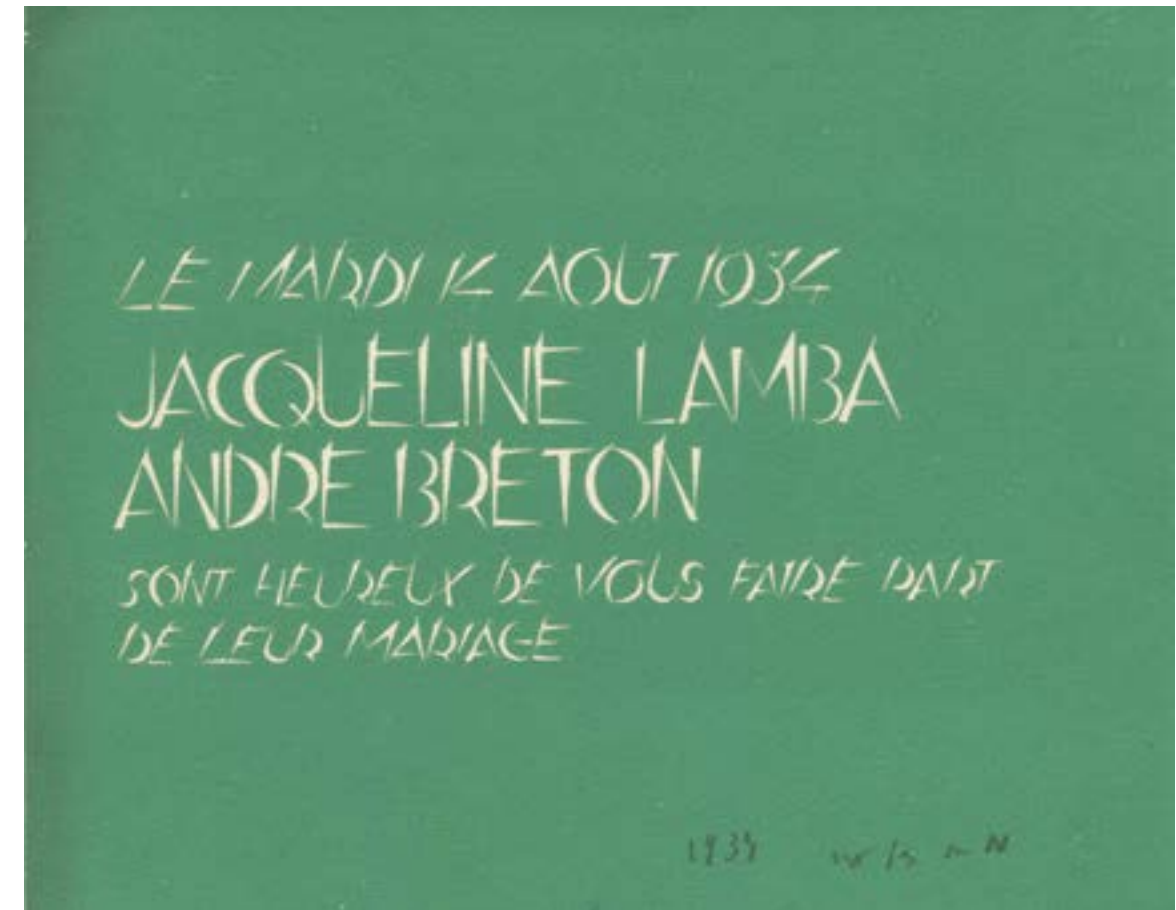 LE MARDI 14 AOUT 1934
JACQUELINE LAMBA
ANDRE BRETON
SONT HEUREUX DE VOUS FAIRE PART
DE LEUR MARIAGE